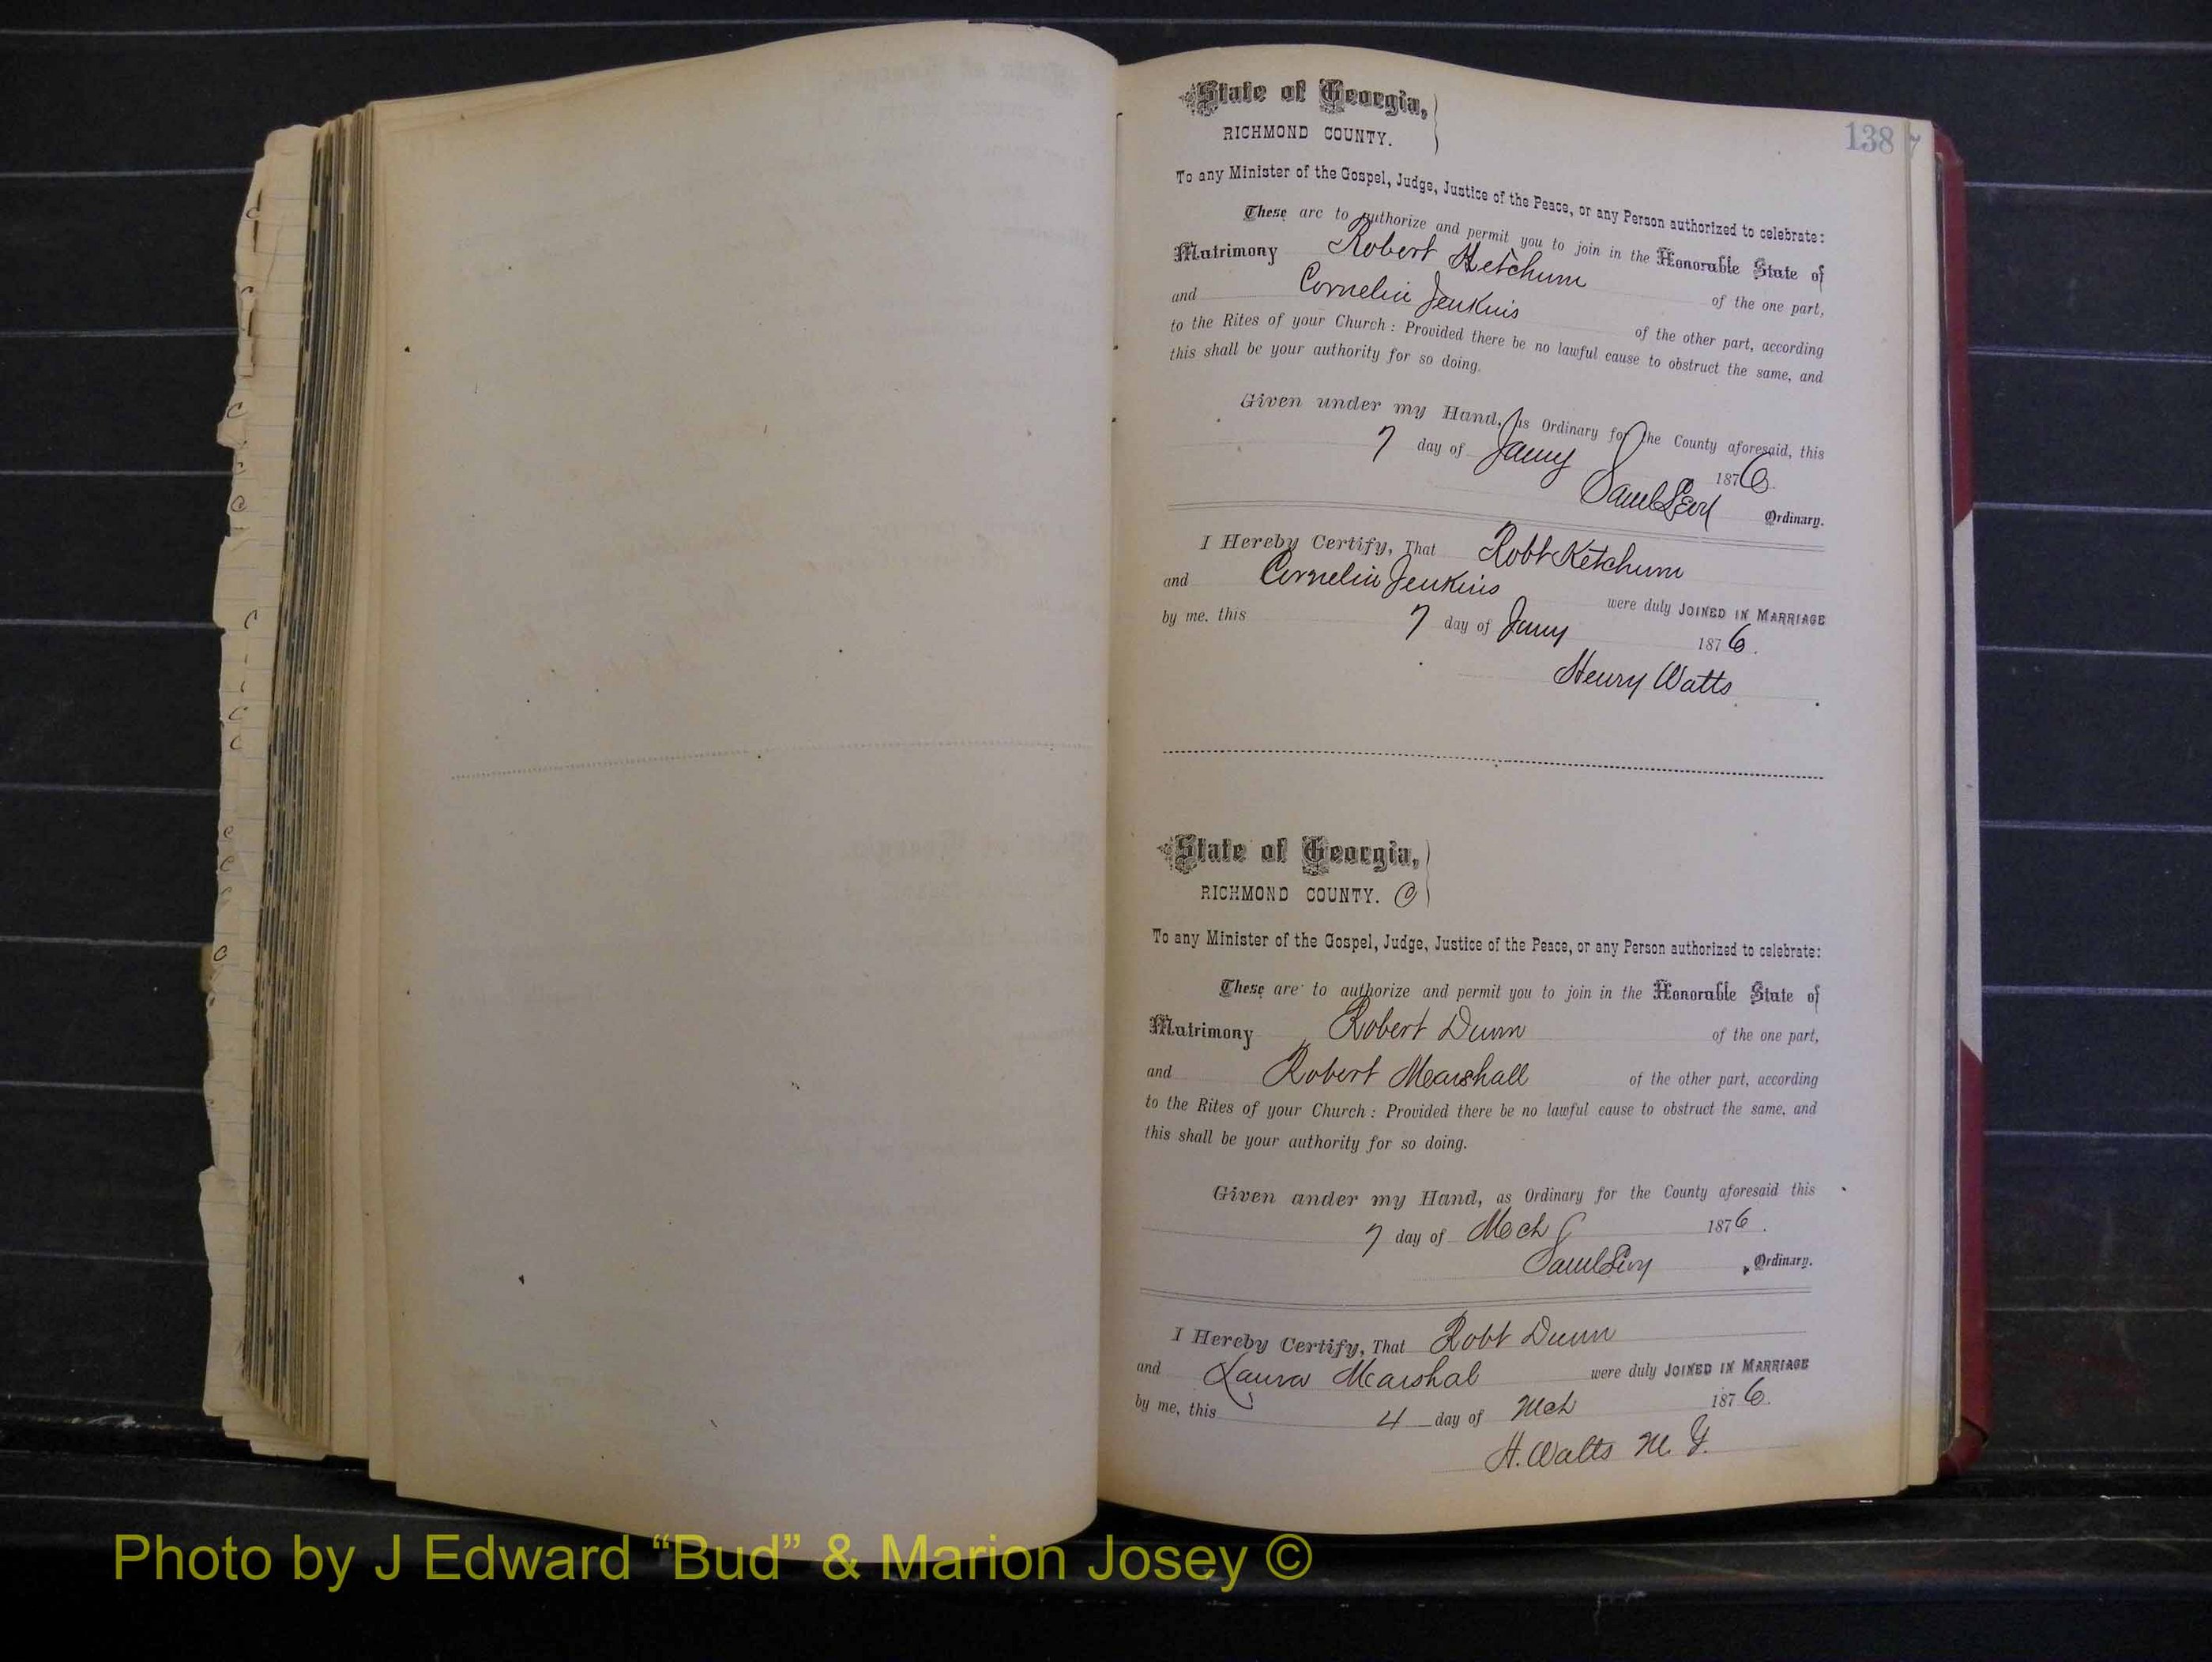 138
State of Georgia,
RICHMOND COUNTY.
To any Minister of the Gospel, Judge, Justice of the Peace, or any Person authorized to celebrate:
These are to authorize and permit you to join in the Honorable State of
Matrimony Robert Ketchum of the one part,
and Cornelia Jenkins of the other part, according
to the Rites of your Church: Provided there be no lawful cause to obstruct the same, and
this shall be your authority for so doing.
Given under my Hand, as Ordinary for the County aforesaid, this
7 day of Jany 1876
Saml Levy Ordinary.
I Hereby Certify, That Robt Ketchum
and Cornelia Jenkins were duly JOINED IN MARRIAGE
by me, this 7 day of Jany 1876.
Henry Watts
State of Georgia,
RICHMOND COUNTY. C
To any Minister of the Gospel, Judge, Justice of the Peace, or any Person authorized to celebrate:
These are to authorize and permit you to join in the Honorable State of
Matrimony Robert Dunn of the one part,
and Robert Marshall of the other part, according
to the Rites of your Church: Provided there be no lawful cause to obstruct the same, and
this shall be your authority for so doing.
Given under my Hand, as Ordinary for the County aforesaid this
7 day of Mch 1876.
Saml Levy Ordinary.
I Hereby Certify, That Robt Dunn
and Laura Marshal were duly JOINED IN MARRIAGE
by me, this 4 day of Mch 1876.
H. Watts M. G.
Photo by J Edward “Bud” & Marion Josey ©